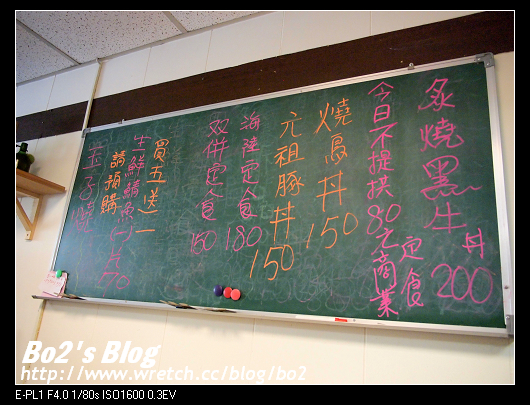 炙燒黑牛丼 200
今日不提供80之商業定食
燒鳥丼 150
元祖豚丼 150
海陸定食 180
双併定食 150
買五送一
生鮮鯖魚(一)片70
請預購
玉子燒
Bo2's Blog
http://www.wretch.cc/blog/bo2
E-PL1 F4.0 1/80s ISO1600 0.3EV